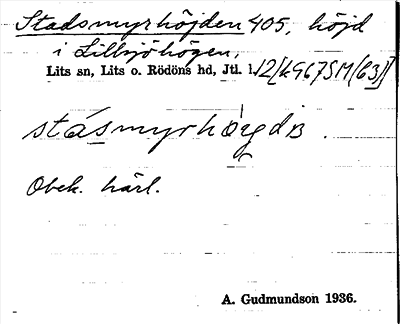 Stadsmyrhöjden 405, höjd
i Lillsjöhögen,
Lits sn, Lits o. Rödöns hd, Jtl. l.
stásmyrhöɡdɴ.
Obek. härl.
A. Gudmundson 1936.